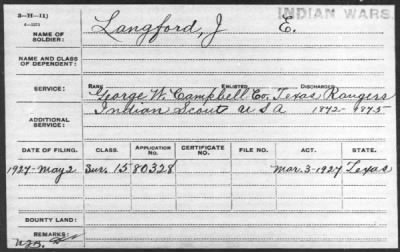 3—H—11J INDIAN WARS
NAME OF SOLDIER: Langford, J E.
NAME AND CLASS OF DEPENDENT:
SERVICE: RANK ENLISTED DISCHARGED
George W. Campbell Co. Texas Rangers
ADDITIONAL SERVICE: Indian Scout U S A 1872-1875
DATE OF FILING. CLASS. APPLICATION NO. CERTIFICATE NO. FILE NO. ACT. STATE.
1927-May 2 Sur. 1580328 Mar. 3-1927 Texas
BOUNTY LAND:
REMARKS: